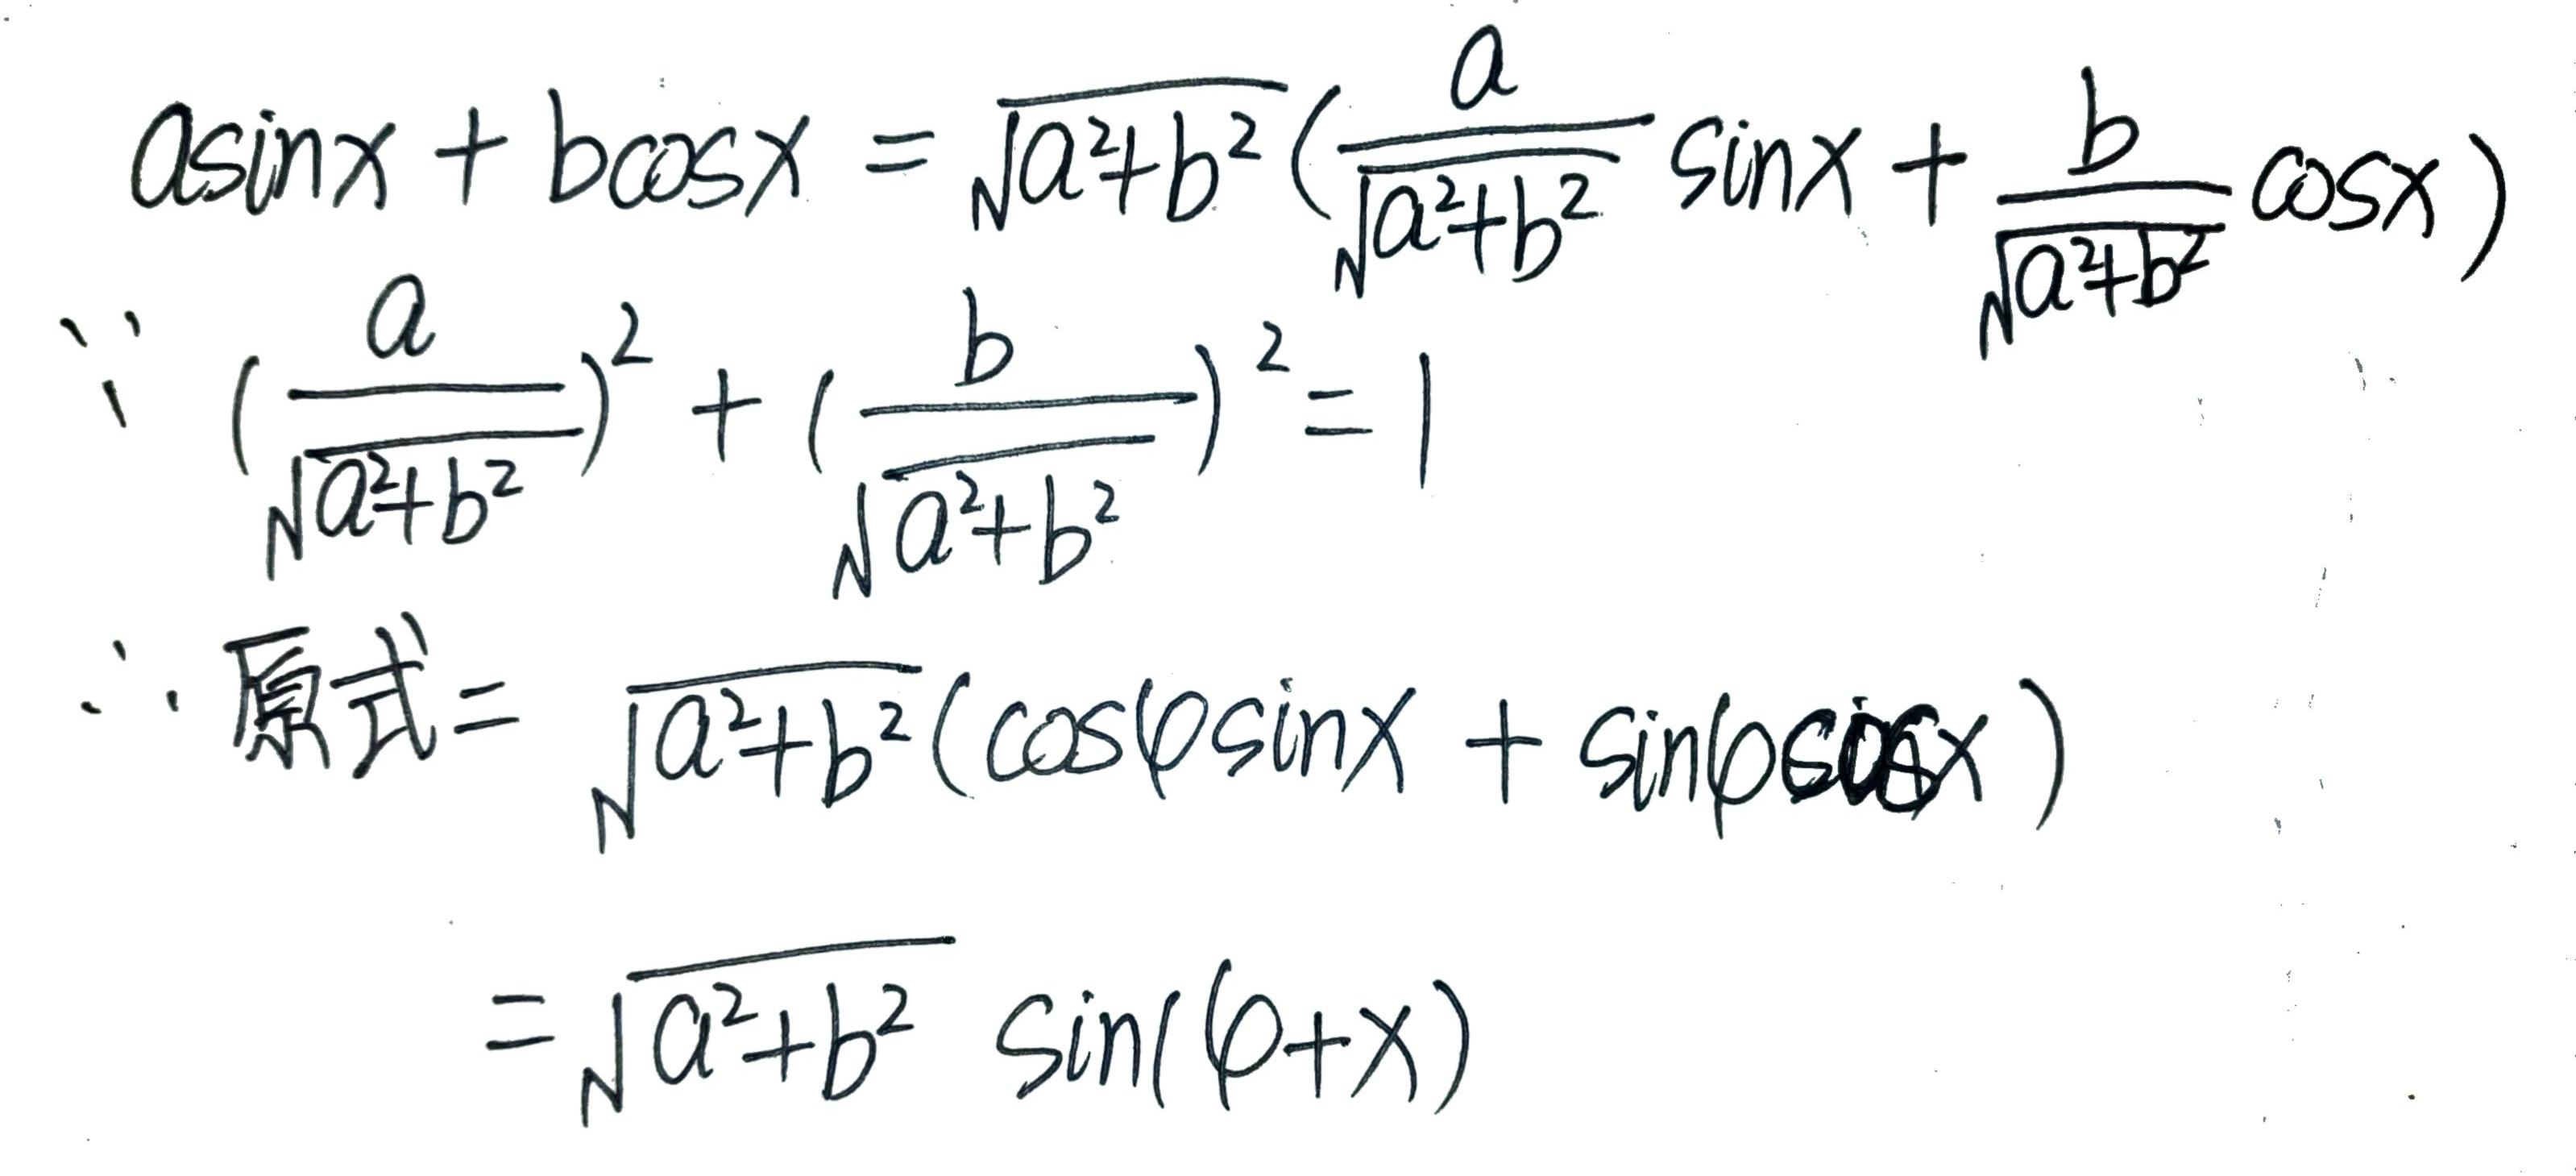 asinx + bcosx = √(a²+b²) (a/√(a²+b²) sinx + b/√(a²+b²) cosx)
∵ (a/√(a²+b²))² + (b/√(a²+b²))² = 1
∴ 原式 = √(a²+b²) (cosφsinx + sinφcosx)
= √(a²+b²) sin(φ+x)